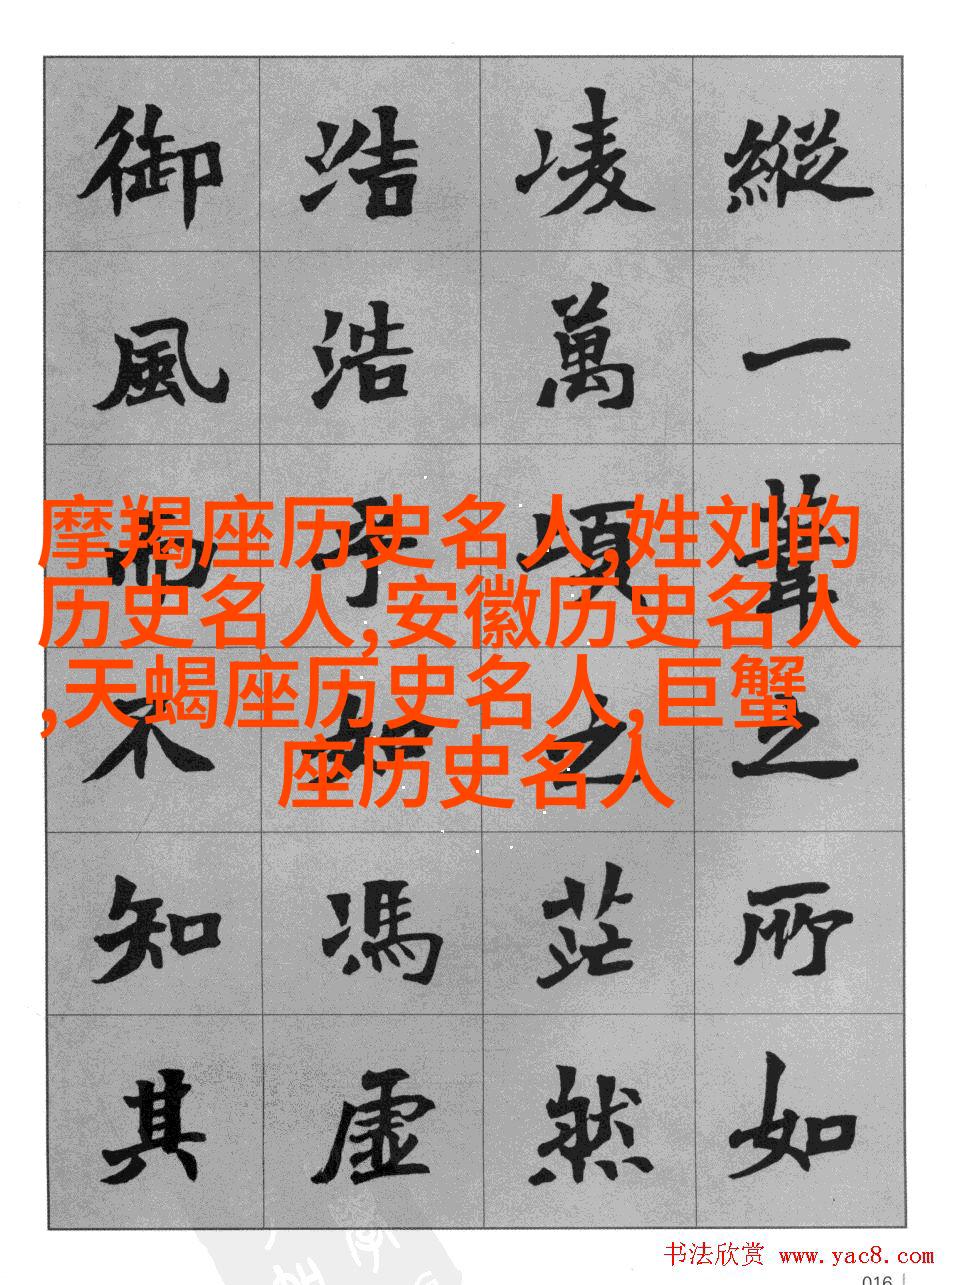 縱一葦之所如
凌萬頃之茫然
浩浩乎如馮虛
御風而不知其
摩羯座历史名人,姓刘的
历史名人,安徽历史名人
,天蝎座历史名人,巨蟹
座历史名人
书法欣赏 www.yac8.com
016